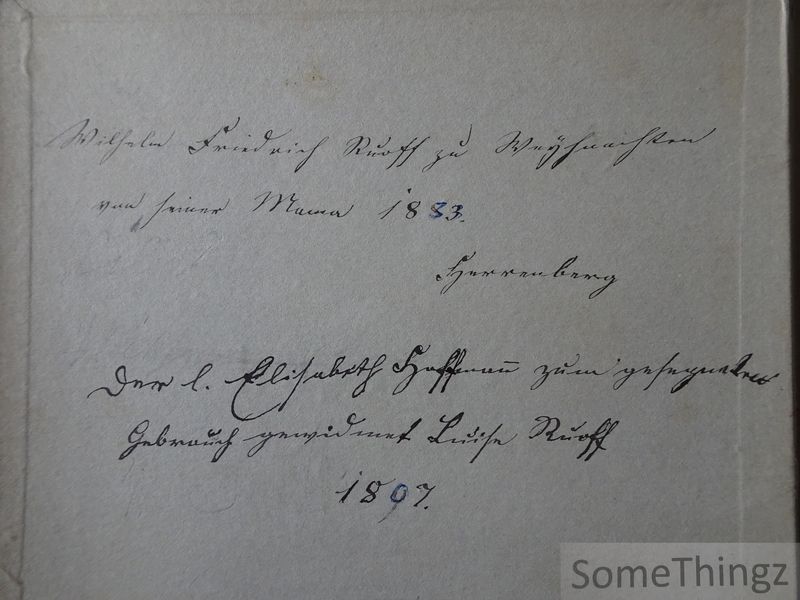 Wilhelm Friedrich Ruoff zu Weyhnachten
von seiner Mama 1833.
Herrenberg
Der l. Elisabeth Hoffmann zum gesegneten
Gebrauch gewidmet Luise Ruoff
1807.
SomeThingz